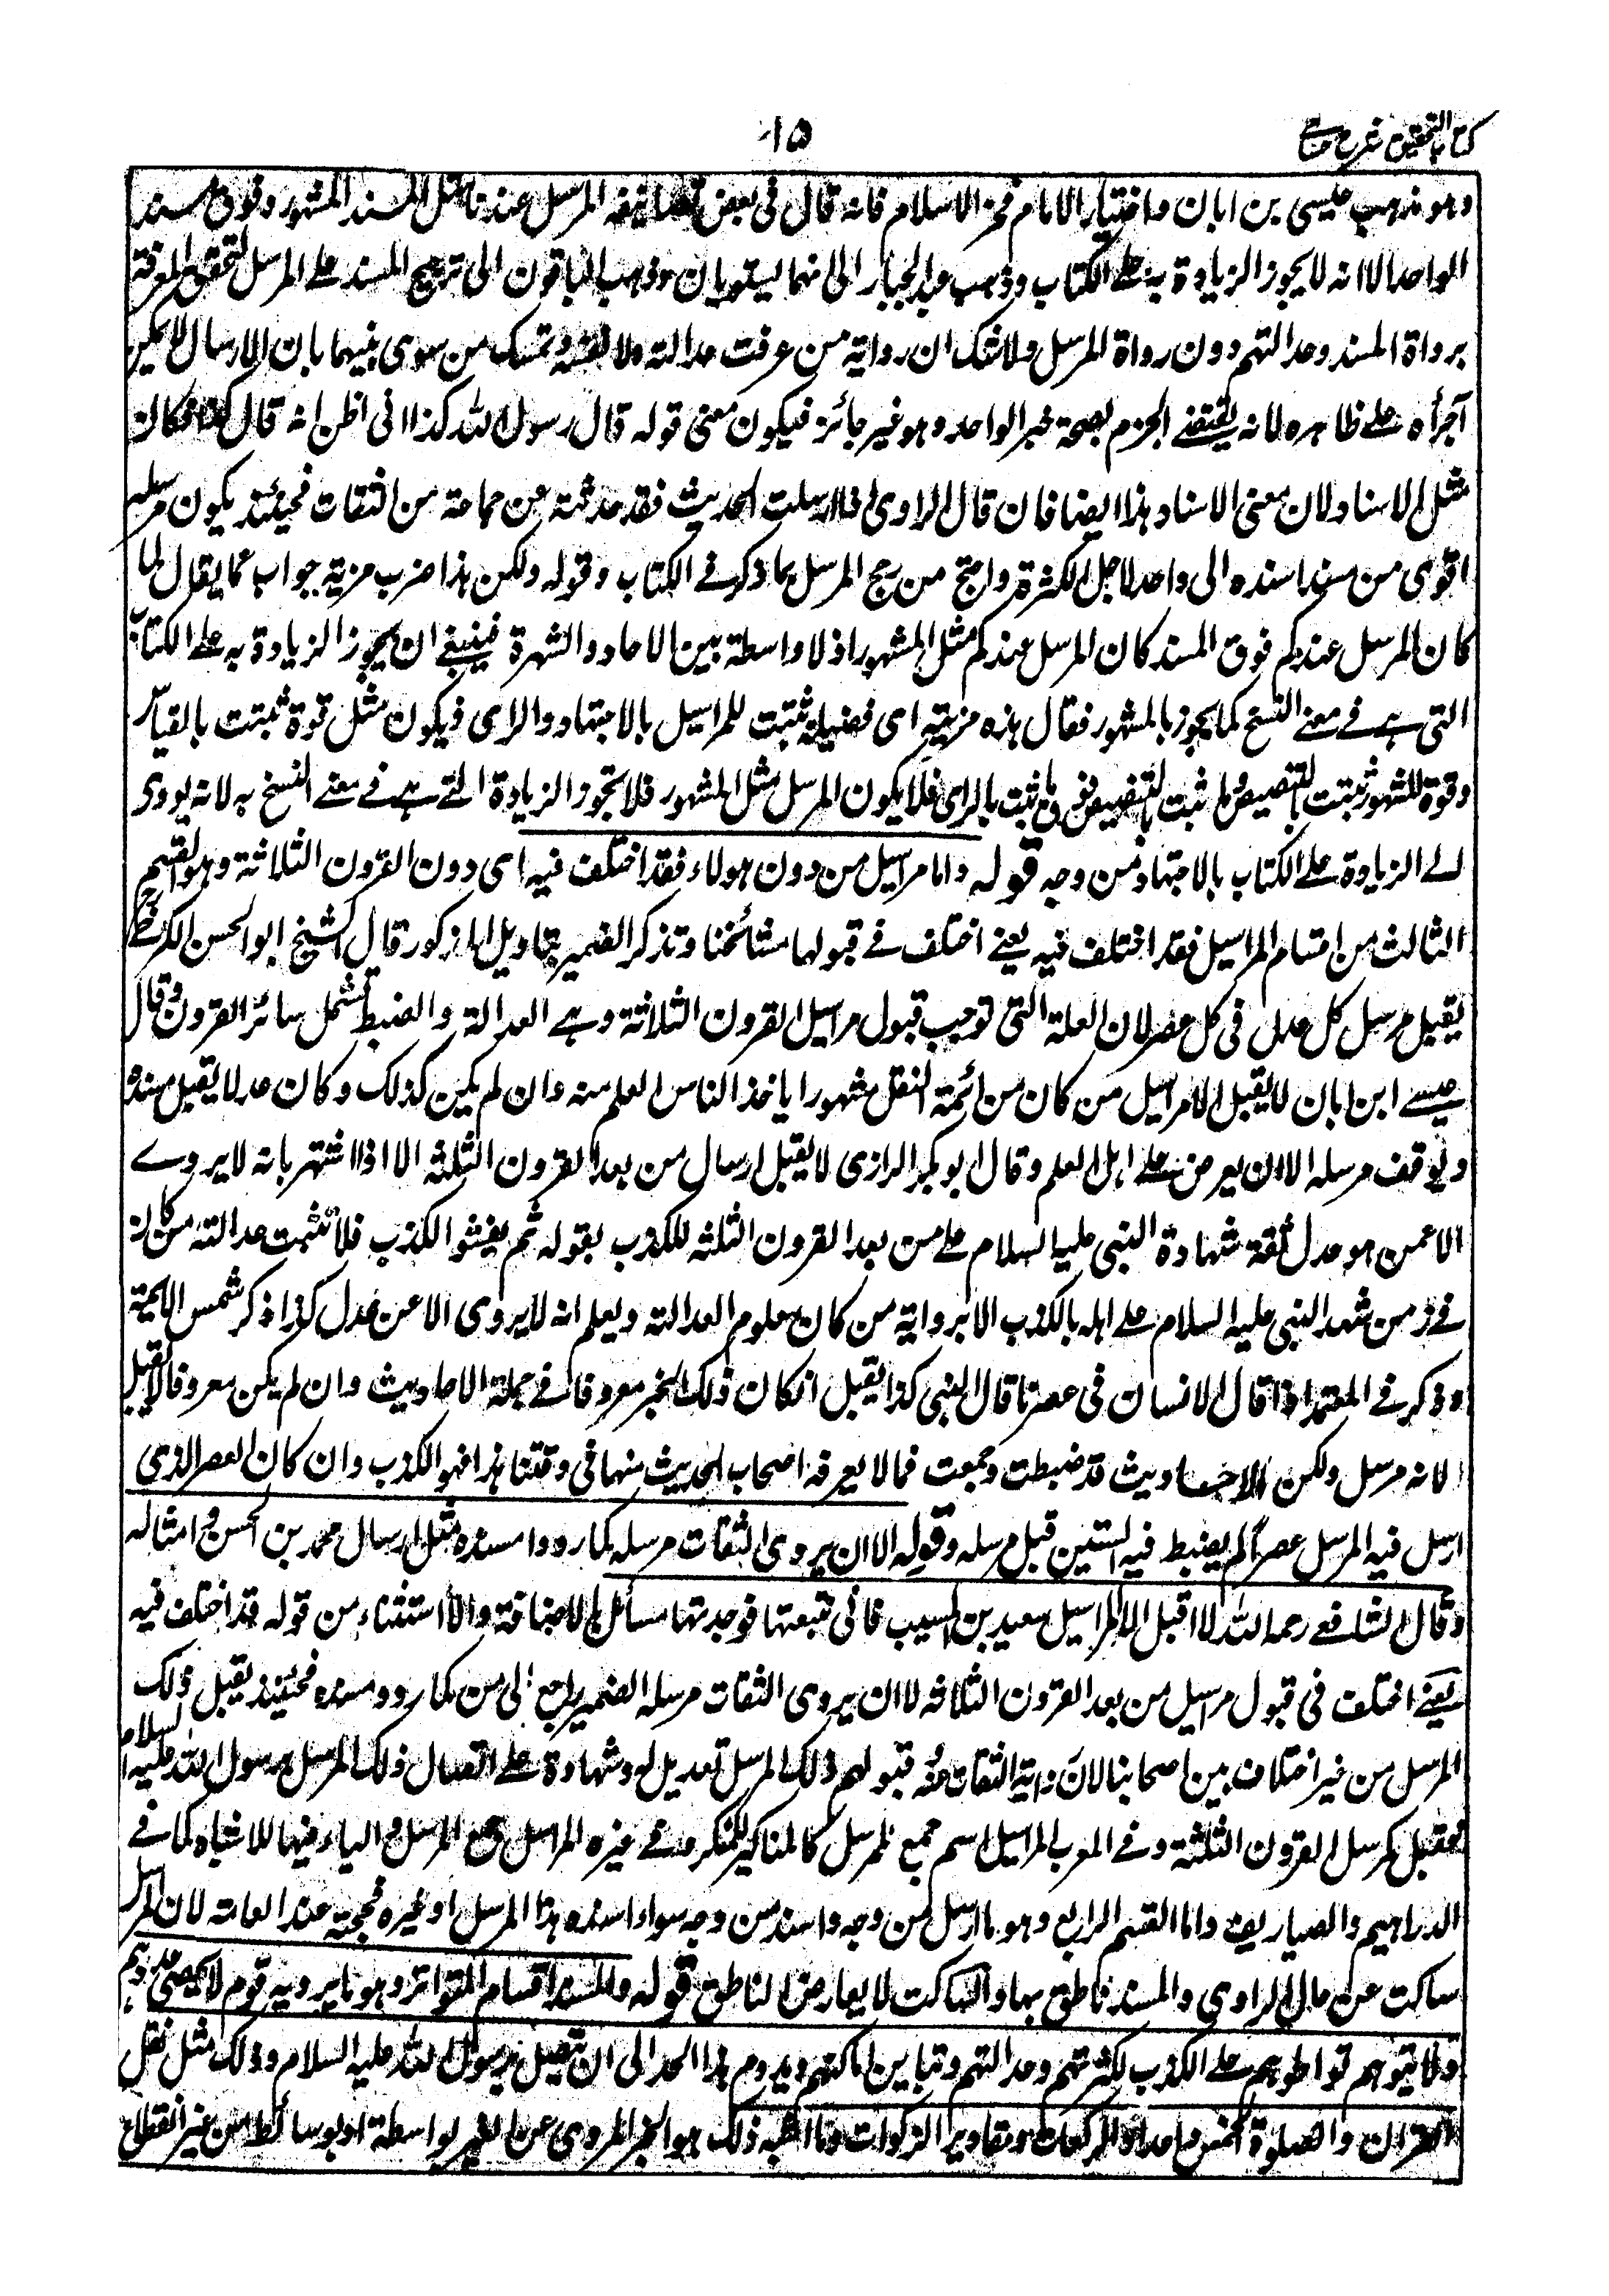 كتاب التحقيق شرح حسامي
١٥
وهو مذهب عيسى بن ابان واختيار الامام فخر الاسلام فانه قال فى بعض تصانيفه المرسل عندنا مثل المسند المشهور وفوق المسند
الواحد الا انه لا يجوز الزيادة به على الكتاب وذهب عبد الجبار الى انهما يستويان وذهب الباقون الى ترجيح المسند على المرسل لتحقق المعرفة
برواة المسند وعدالتهم دون رواة المرسل ولا شك ان رواية من عرفت عدالته ولا وتمسك من سوى بينهما بان الارسال لا يمكن
اجراؤه على ظاهره لانه يقتضى الجزم بصحة خبر الواحد وهو غير جائز فيكون معنى قوله قال رسول الله كذا انى اظن انه قال كذا فكان
مثل الاسناد لان معنى الاسناد هذا ايضا فان قال الراوى اذا ارسلت الحديث فقد حدثته عن جماعة من الثقات فحينئذ يكون مرسله
اقوى من مسند اسنده الى واحد لاجل الكثرة واحتج من رجح المرسل بما ذكر فى الكتاب وقوله ولكن هذا ضرب مزية جواب عما يقال لما
كان المرسل عندكم فوق المسند كان المرسل عندكم مثل المشهور اذ لا واسطة بين الاحاد والشهرة فينبغى ان يجوز الزيادة به على الكتاب
التى هى فى معنى النسخ كما يجوز بالمشهور فقال هذه مزية اى فضيلة ثبتت للمراسيل بالاجتهاد والراى فيكون مثل قوة ثبتت بالقياس
وقوة المشهور ثبتت بالتنصيص وما ثبت بالتنصيص فوق ما ثبت بالراى فلا يكون المرسل مثل المشهور فلا يجوز الزيادة التى هى فى معنى النسخ به لانه يودى
الى الزيادة على الكتاب بالاجتهاد من وجه قوله واما مراسيل من دون هولاء فقد اختلف فيه اى دون القرون الثلاثة وهو القسم
الثالث من اقسام المراسيل فقد اختلف فيه يعنى اختلف فى قبولها مشائخنا وتذكر الضمير بتاويل المذكور قال الشيخ ابو الحسن الكرخى
يقبل مرسل كل عدل فى كل عصر لان العلة التى توجب قبول مراسيل القرون الثلاثة وهى العدالة والضبط تشمل سائر القرون وقال
عيسى ابن ابان لا يقبل الا مراسيل من كان من ائمة النقل مشهورا ياخذ الناس العلم منه وان لم يكن كذلك وكان عدلا يقبل مسنده
ويوقف مرسله الا ان يعرض على اهل العلم وقال ابو بكر الرازى لا يقبل ارسال من بعد القرون الثلثه الا اذا اشتهر بانه لا يروى
الا عمن هو عدل ثقة شهادة النبى عليه السلام على من بعد القرون الثلثه بالكذب بقوله ثم يفشو الكذب فلا تثبت عدالته من كان
فى زمن شهد النبى عليه السلام على اهله بالكذب الا برواية من كان معلوم العدالة ويعلم انه لا يروى الا عن عدل كذا ذكر شمس الايمة
وذكر فى المعتمد اذا قال الانسان فى عصرنا قال النبى كذا يقبل ان كان ذلك الخبر معروفا فى جملة الاحاديث وان لم يكن معروفا لا يقبل
لا لانه مرسل ولكن الاحاديث قد ضبطت وجمعت فما لا يعرفه اصحاب الحديث منها فى وقتنا هذا فهو الكذب وان كان العصر الذى
ارسل فيه المرسل عصرا لم يضبط فيه السنن قبل مرسله وقوله الا ان يروى الثقات مرسله كما رووا مسنده مثل ارسال محمد بن الحسن وامثاله
وقال الشافعى رحمه الله لا اقبل الا مراسيل سعيد بن المسيب فانى تتبعتها فوجدتها مسائل الاضافة والا استثناء من قوله قد اختلف فيه
يعنى اختلف فى قبول مراسيل من بعد القرون الثلاثه الا ان يروى الثقات مرسله الضمير راجع الى من كما رووا مسنده فحينئذ يقبل ذلك
المرسل من غير اختلاف بين اصحابنا لان رواية الثقات عنه قبولهم ذلك المرسل تعديل له وشهادة على اتصال ذلك المرسل برسول الله عليه السلام
فيقبل كمرسل القرون الثلثة وفى المغرب المراسيل اسم جمع للمرسل كالمناكير للمنكر وفى غيره المراسل جمع المرسل والياء فيها للاشباه كما فى
الدراهيم والصياريف واما القسم الرابع وهو ما ارسل من وجه واسند من وجه سواء اسنده هذا المرسل او غيره فحجة عند العامة لان المرسل
ساكت عن حال الراوى والمسند ناطق بها والساكت لا يعارض الناطق قوله والمسند اقسام المتواتر وهو ما يرويه قوم لا يحصى عددهم
ولا يتوهم تواطوهم على الكذب لكثرتهم وعدالتهم وتباين اماكنهم ويدوم هذا الحد الى ان يتصل برسول الله عليه السلام وذلك مثل نقل
القران والصلوة الخمس واعداد الركعات ومقادير الزكوات وما اشبه ذلك هو الخبر المروى عن الغير بواسطة او بوسائط من غير انقطاع